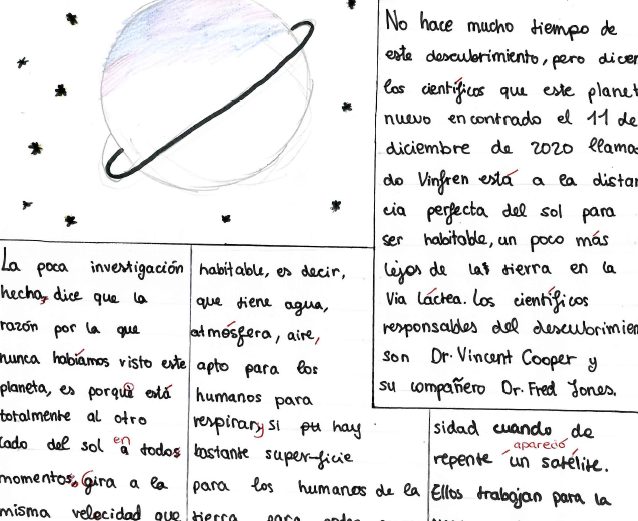 No hace mucho tiempo de
este descubrimiento, pero dicen
los científicos que este planet
nuevo encontrado el 11 de
diciembre de 2020 llama
do Vinfren está a la distan
cia perfecta del sol para
ser habitable, un poco más
lejos de la tierra en la
Via láctea. Los científicos
responsables del descubrimien
son Dr. Vincent Cooper y
su compañero Dr. Fred Jones.
La poca investigación
hecha, dice que la
razón por la que
nunca habíamos visto este
planeta, es porque está
totalmente al otro
lado del sol en todos
momentos, gira a la
misma velocidad que
habitable, es decir,
que tiene agua,
atmósfera, aire,
apto para los
humanos para
respirar y si hay
bastante superficie
para los humanos de la
tierra para
sidad cuando de
repente apareció un satélite.
Ellos trabajan para la